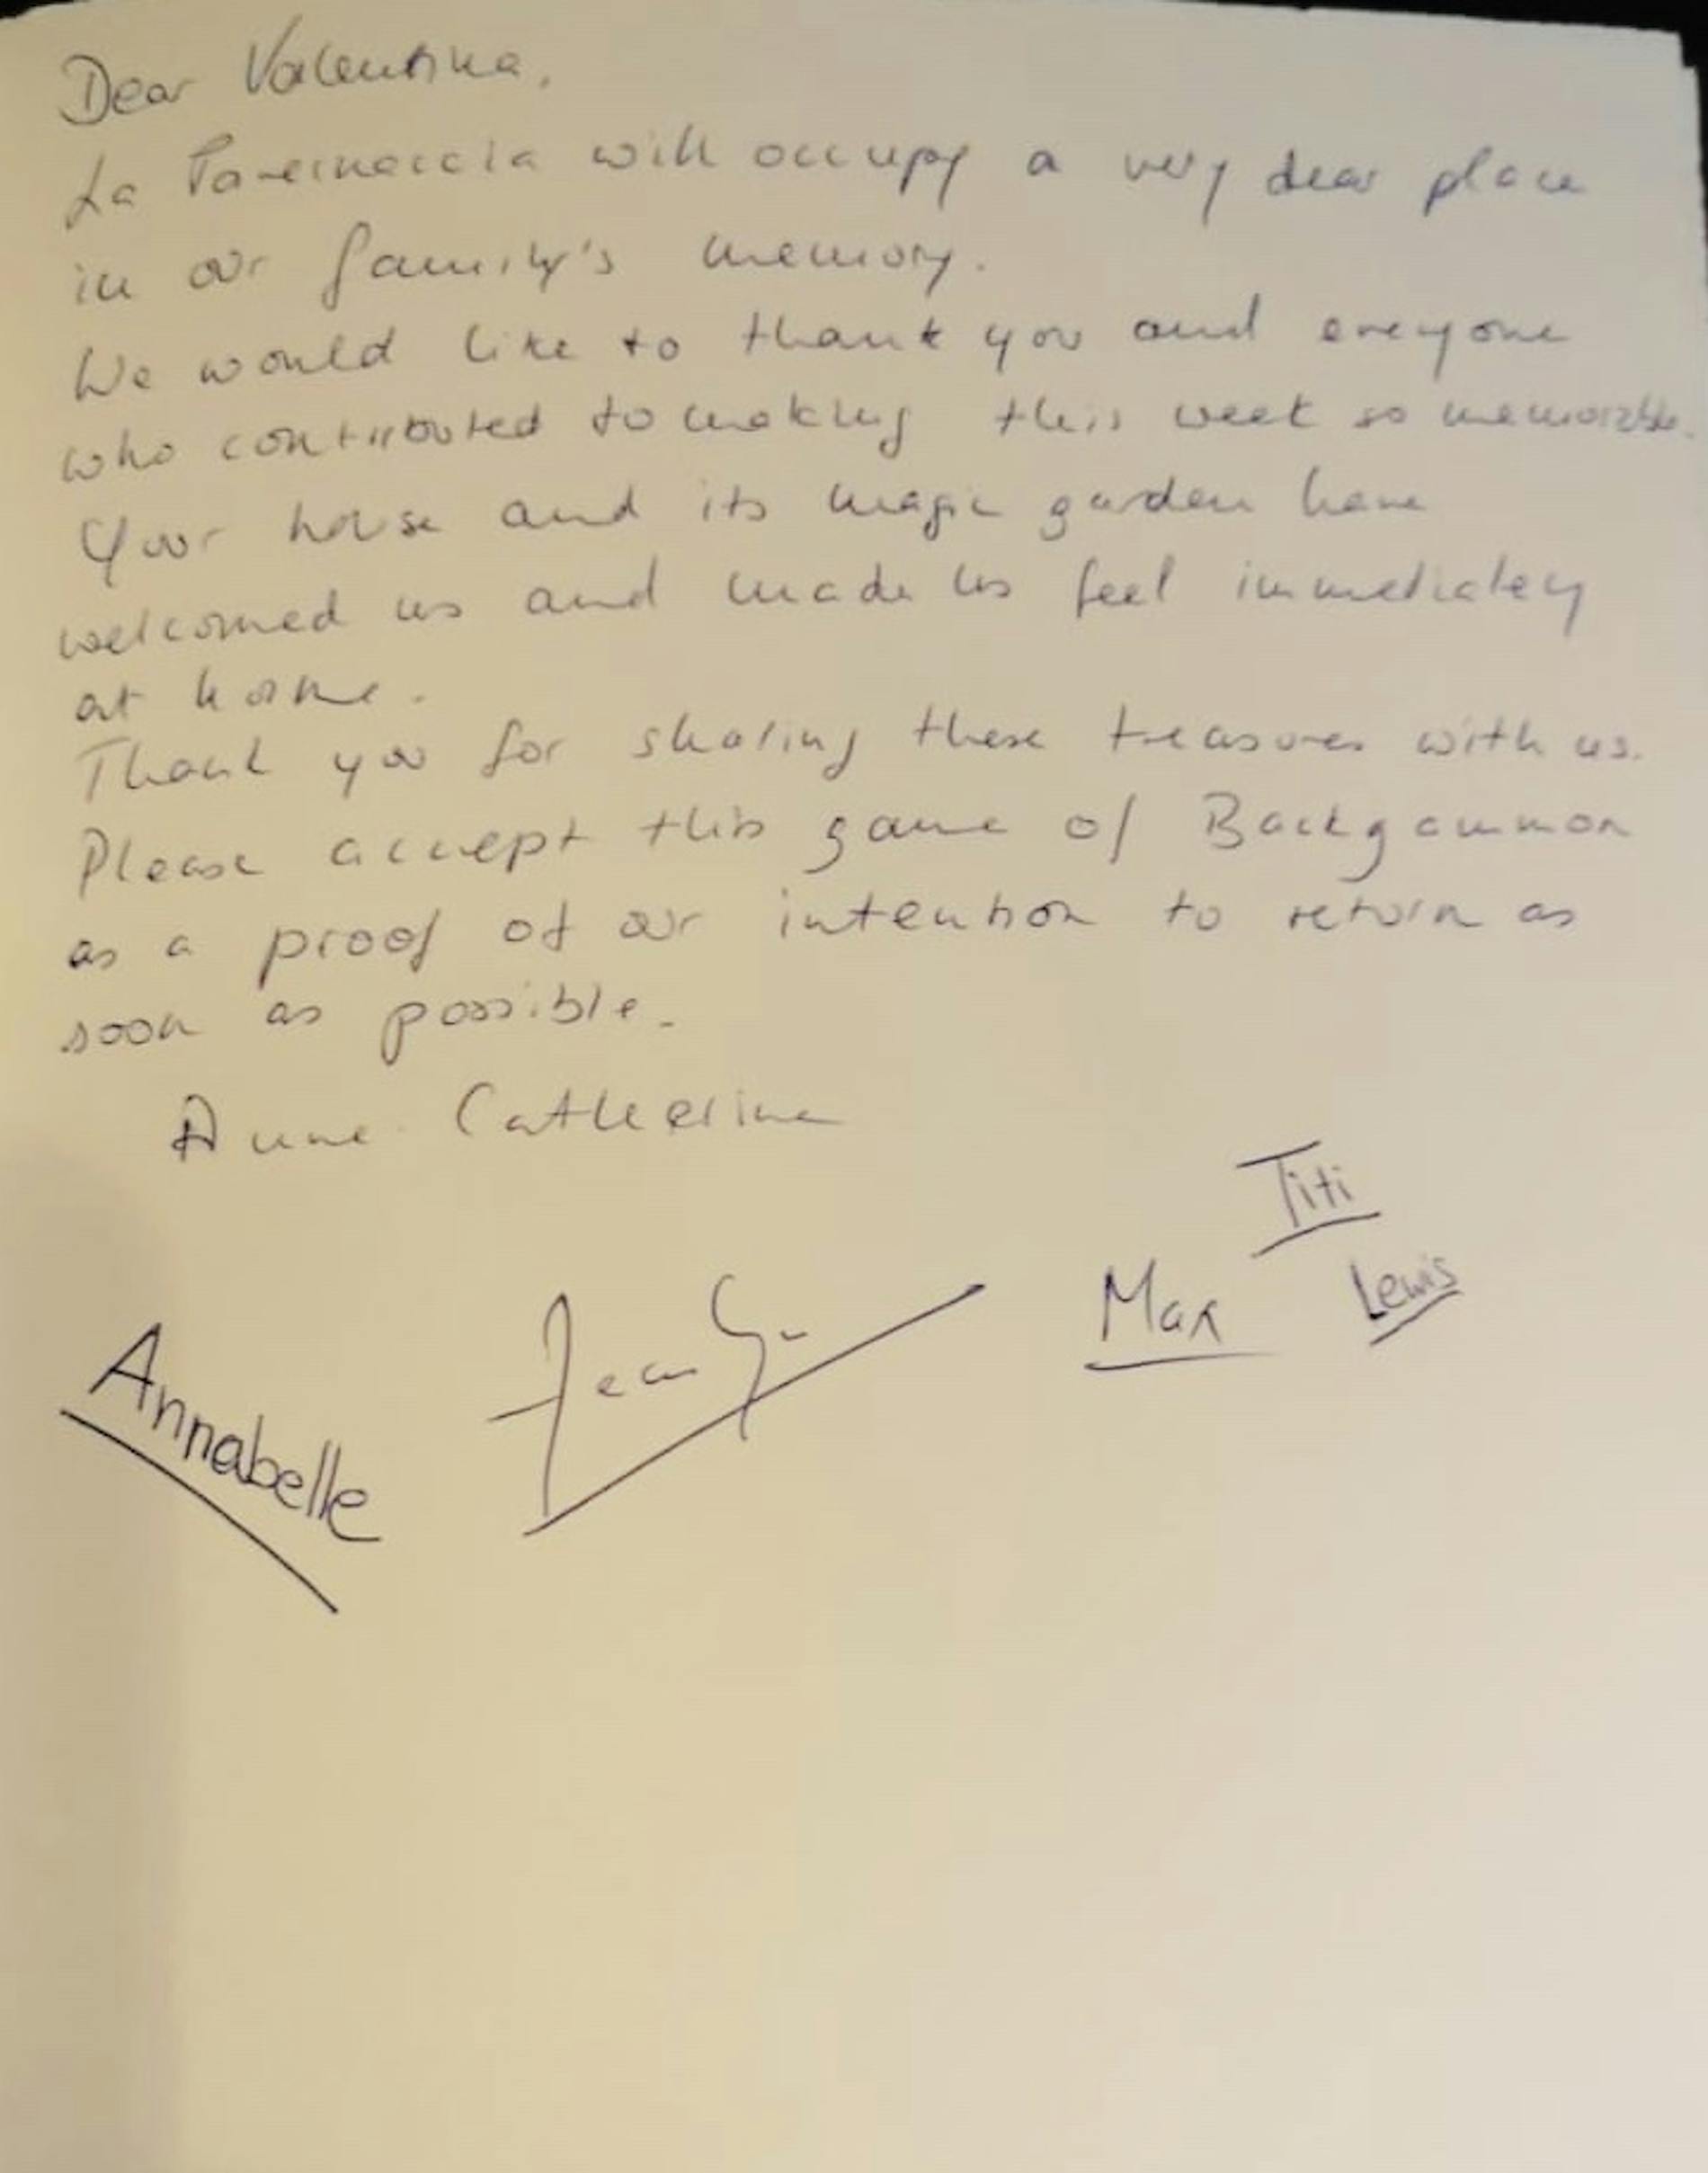 Dear Valentina,
La Tavernaccia will occupy a very dear place
in our family's memory.
We would like to thank you and everyone
who contributed to making this week so memorable.
Your house and its magic garden have
welcomed us and made us feel immediately
at home.
Thank you for sharing these treasures with us.
Please accept this game of Backgammon
as a proof of our intention to return as
soon as possible.
Anne-Catherine
Titi
Max Lewis
Annabelle Jean